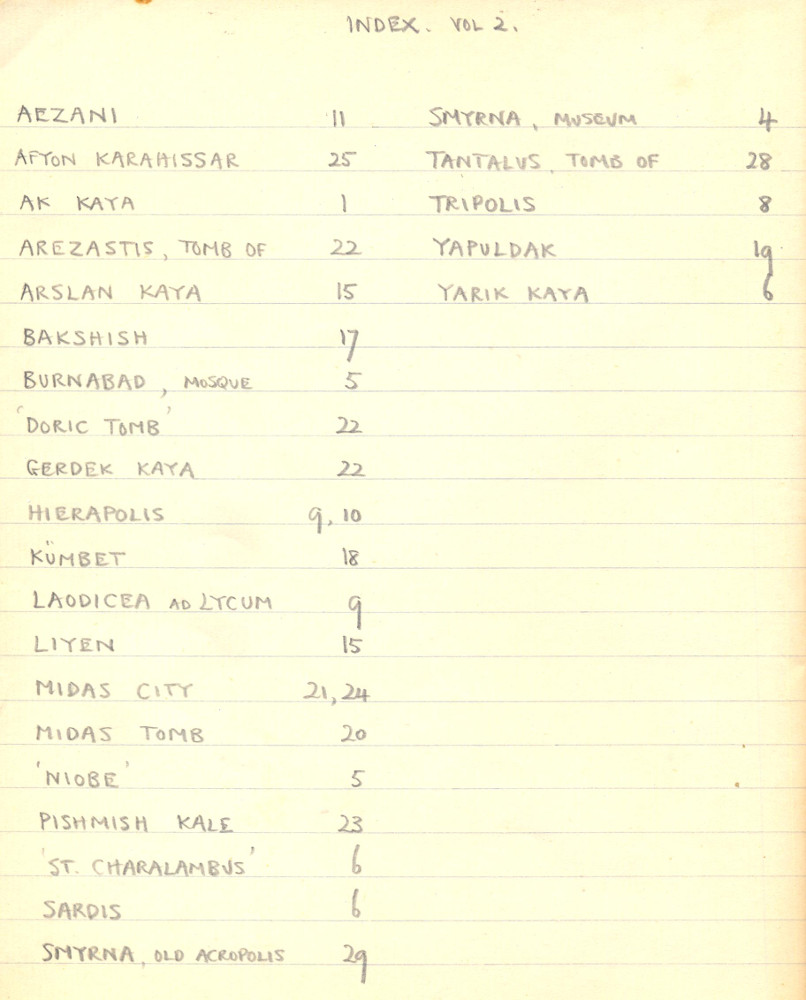 INDEX. VOL 2.
AEZANI 11
AFYON KARAHISSAR 25
AK KAYA 1
AREZASTIS, TOMB OF 22
ARSLAN KAYA 15
BAKSHISH 17
BURNABAD, MOSQUE 5
'DORIC TOMB' 22
GERDEK KAYA 22
HIERAPOLIS 9, 10
KÜMBET 18
LAODICEA AD LYCUM 9
LIYEN 15
MIDAS CITY 21, 24
MIDAS TOMB 20
'NIOBE' 5
PISHMISH KALE 23
'ST. CHARALAMBUS' 6
SARDIS 6
SMYRNA, OLD ACROPOLIS 29
SMYRNA, MUSEUM 4
TANTALUS, TOMB OF 28
TRIPOLIS 8
YAPULDAK 19
YARIK KAYA 6